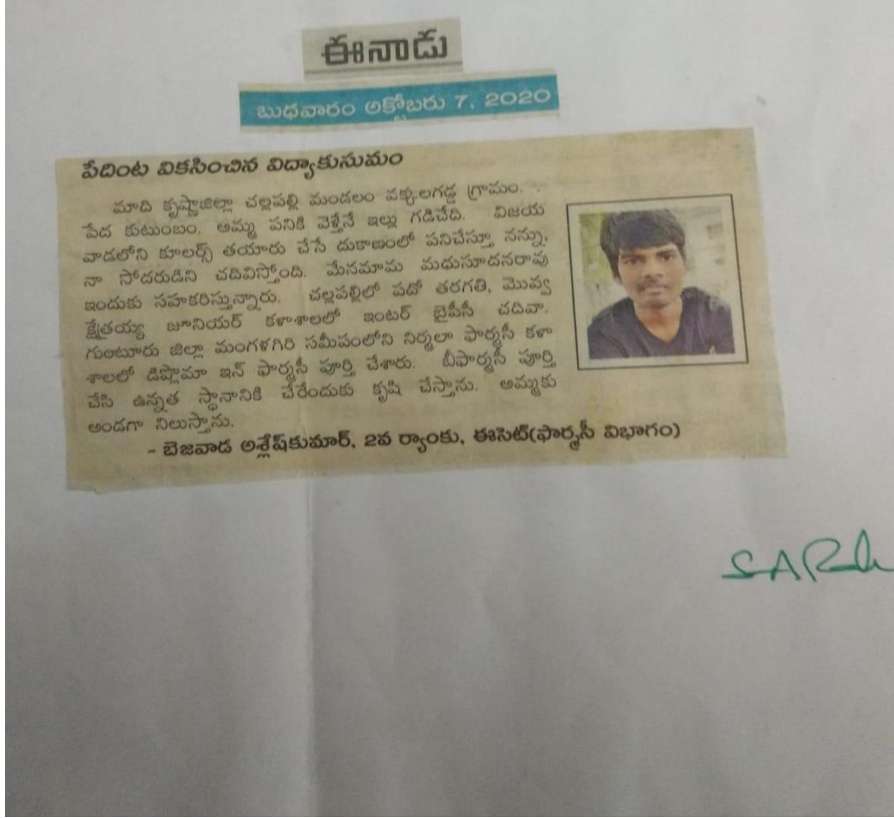 ఈనాడు
బుధవారం అక్టోబరు 7, 2020
పేదింట వికసించిన విద్యాకుసుమం
మాది కృష్ణాజిల్లా చల్లపల్లి మండలం వక్కలగడ్డ గ్రామం.
పేద కుటుంబం. అమ్మ పనికి వెళ్తేనే ఇల్లు గడిచేది. విజయ
వాడలోని కూలర్స్ తయారు చేసే దుకాణంలో పనిచేస్తూ నన్ను,
నా సోదరుడిని చదివిస్తోంది. మేనమామ మధుసూదనరావు
ఇందుకు సహకరిస్తున్నారు. చల్లపల్లిలో పదో తరగతి, మొవ్వ
క్షేత్రయ్య జూనియర్ కళాశాలలో ఇంటర్ బైపీసీ చదివా.
గుంటూరు జిల్లా మంగళగిరి సమీపంలోని నిర్మలా ఫార్మసీ కళా
శాలలో డిప్లొమా ఇన్ ఫార్మసీ పూర్తి చేశారు. బీఫార్మసీ పూర్తి
చేసి ఉన్నత స్థానానికి చేరేందుకు కృషి చేస్తాను. అమ్మకు
అండగా నిలుస్తాను.
- బెజవాడ అశ్లేష్‌కుమార్, 2వ ర్యాంకు, ఈసెట్(ఫార్మసీ విభాగం)